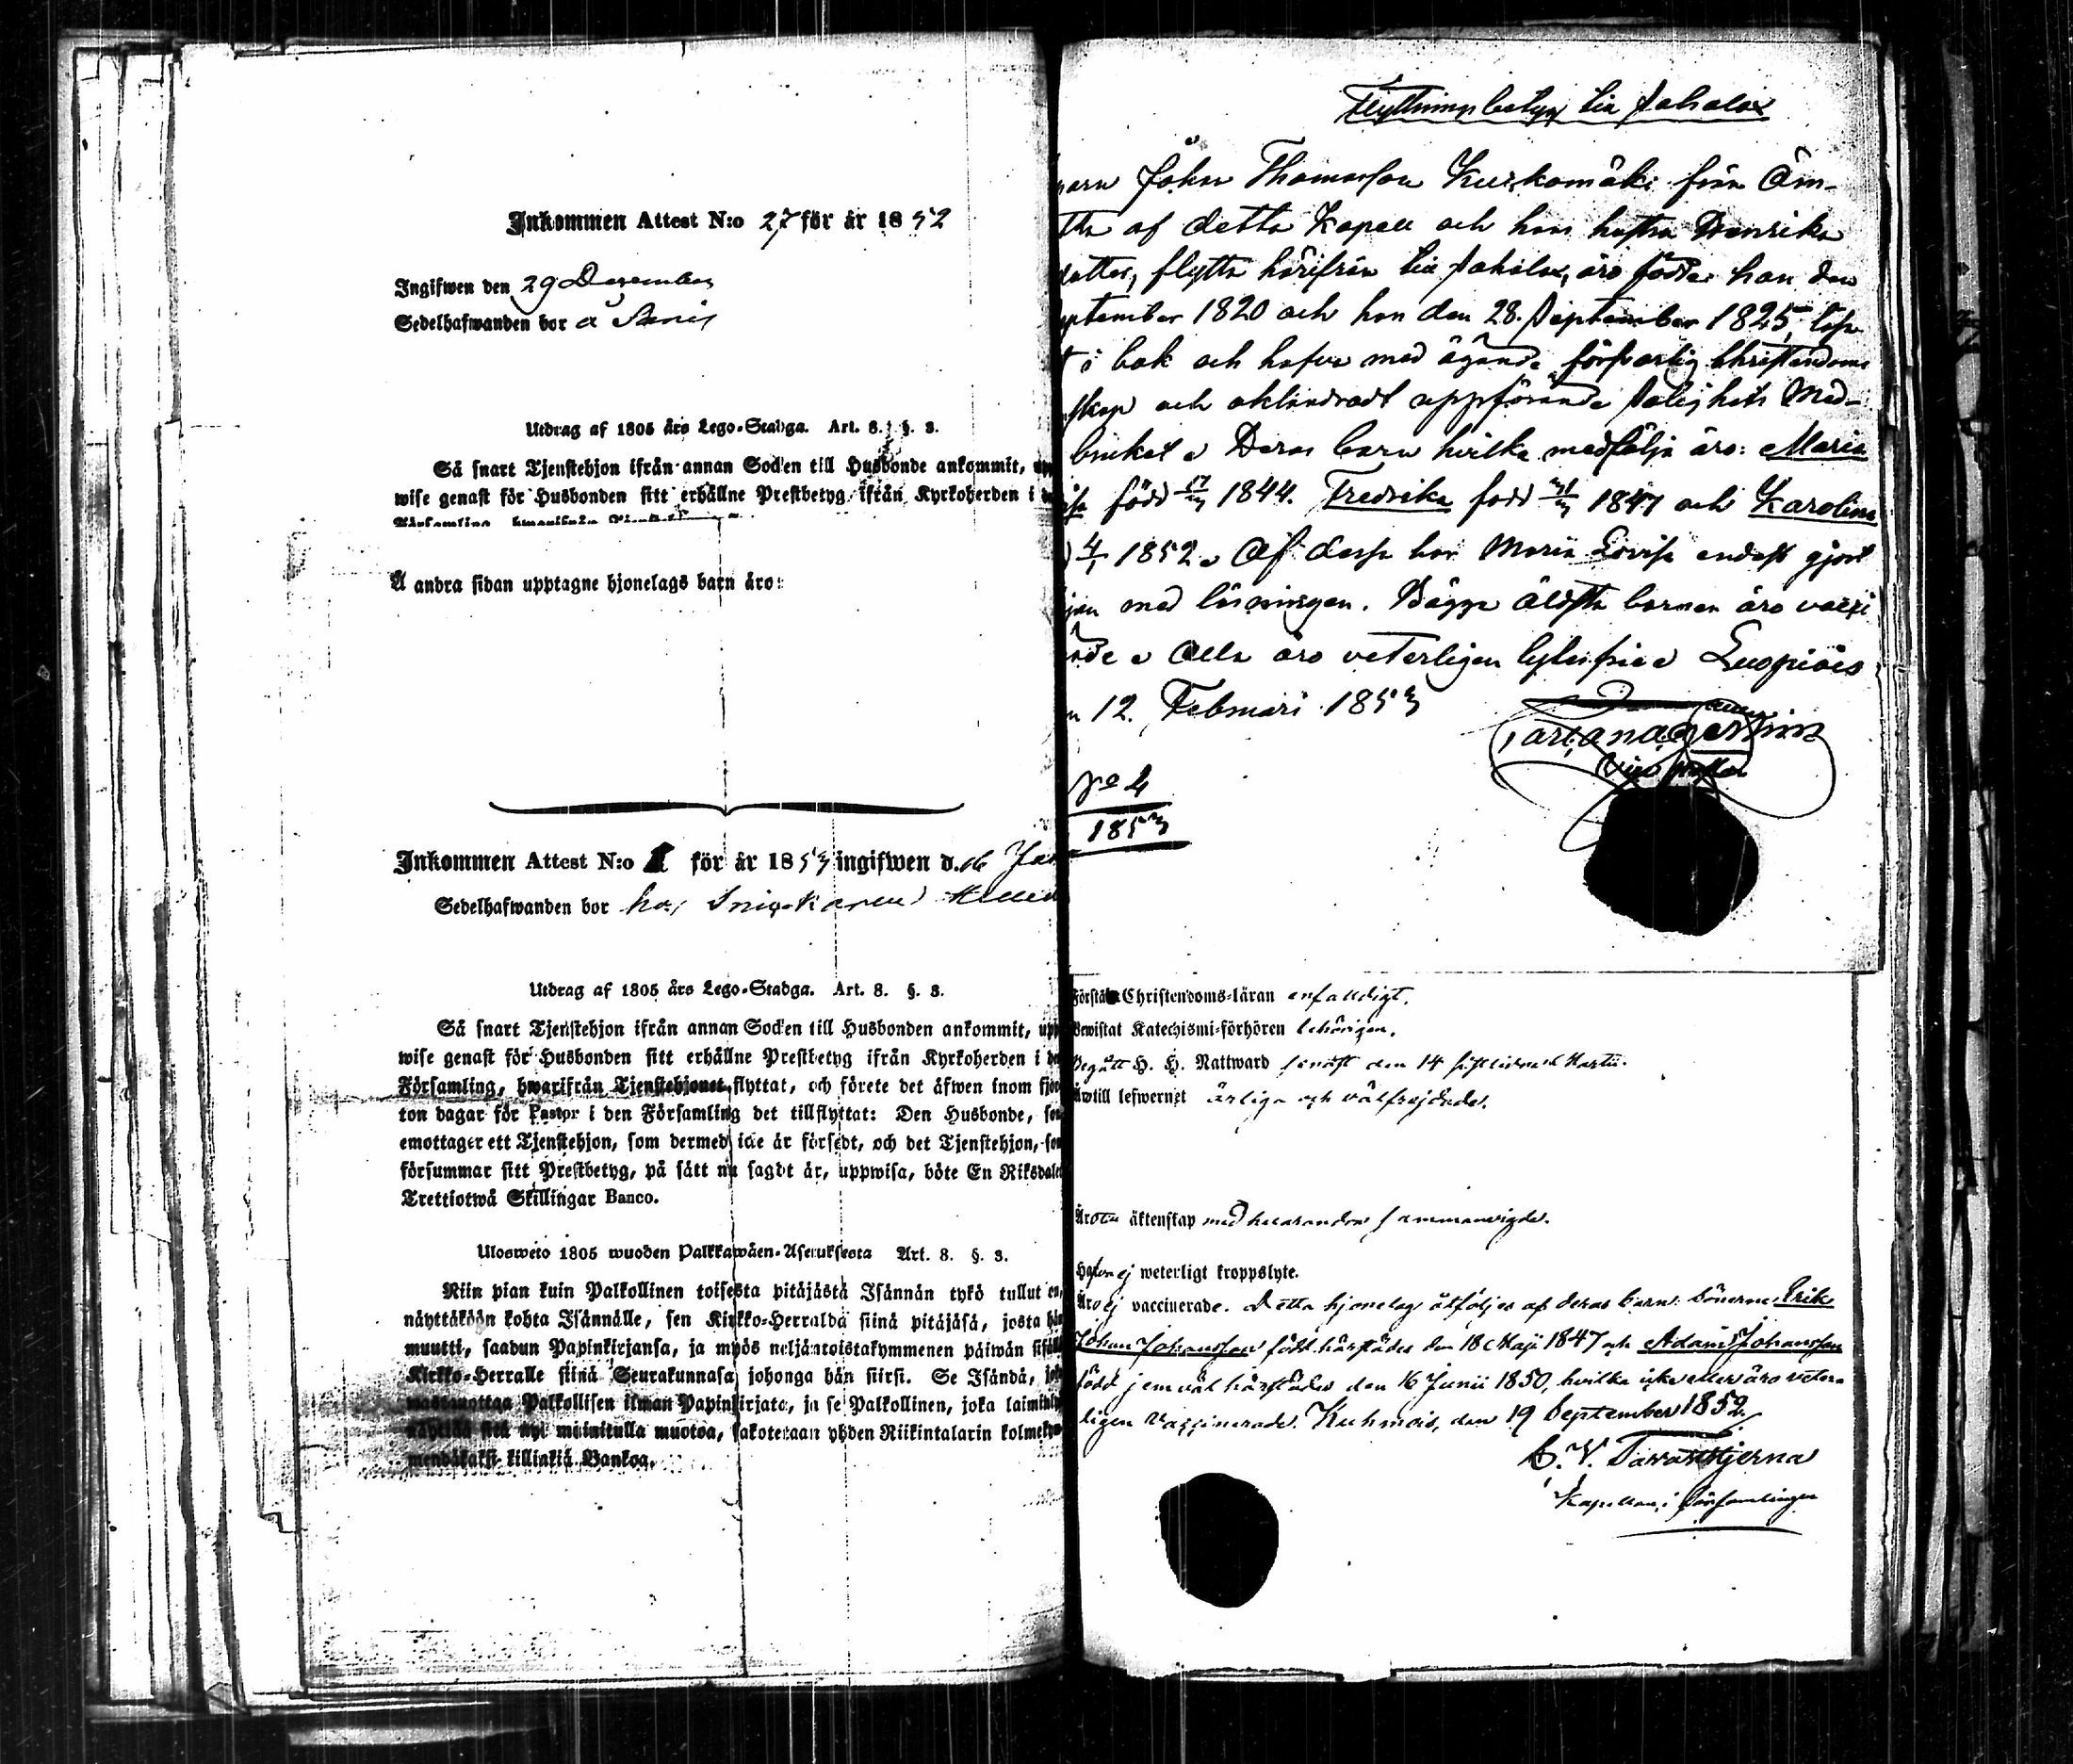 Inkommen Attest N:o 27 för år 1852
Ingifwen den 29 December
Sedelhafwanden bor å
Utdrag af 1805 års Lego-Stadga. Art. 8. §. 3.
Så snart Tjenstehjon ifrån annan Socken till Husbonde ankommit,
wise genast för Husbonden sitt erhållne Prestbetyg ifrån Kyrkoherden i
Å andra sidan upptagne hjonelags barn äro:
Inkommen Attest N:o 1 för år 1853 ingifwen d. 16 Jan
Sedelhafwanden bor hos
Utdrag af 1805 års Lego-Stadga. Art. 8. §. 3.
Så snart Tjenstehjon ifrån annan Socken till Husbonden ankommit, upp
wise genast för Husbonden sitt erhållne Prestbetyg ifrån Kyrkoherden i
Församling, hwarifrån Tjenstehjonet flyttat, och förete det äfwen inom fjor
ton dagar för Pastor i den Församling det tillflyttat: Den Husbonde, som
emottager ett Tjenstehjon, som dermed icke är försedt, och det Tjenstehjon, som
försummar sitt Prestbetyg, på sätt nu sagdt är, uppwisa, böte En Riksdaler
Trettiotwå Skillingar Banco.
Ulosweto 1805 wuoden Palkkawäen-Asetuksesta Art. 8. §. 3.
Niin pian kuin Palkollinen toisesta pitäjästä Isännän tykö tullut on,
näyttäköön kohta Isännälle, sen Kirkko-Herralda siinä pitäjäsä, josta hän
muutti, saadun Papinkirjansa, ja myös neljäntoistakymmenen päiwän sisällä
Kirkko-Herralle siinä Seurakunnasa johonga hän siirsi. Se Isändä, joka
wastaanottaa Palkollisen ilman Papinkirjata, ja se Palkollinen, joka laiminlyö
näyttää sitä nyt mainitulla muotoa, sakotetaan yhden Riikintalarin kolmekym
mendäkaksi killinkiä Bankoa.
Flyttningsbetyg till Sahalax
Johan Thomasson Kurkomäki från Äm-
af detta Kapell och hans hustru Henrika
dotter, flytta härifrån till Sahalax, äro födde han den
ptember 1820 och hon den 28. September 1825,
i bok och hafva med ägande försvarlig Christendoms
skap och oklandradt uppförande Salighets Med-
brukat. Deras barn hvilka medfölja äro: Maria
född 1844. Fredrika född 1847 och Karolina
4/1 1852. Af dessa har Maria Lovisa endast gjort
jan med läsningen. Bägge äldsta barnen äro vacci
Alla äro veterligen lytesfrie. Luopiois
12. Februari 1853
No 4
1853
Förstå Christendoms-läran enfalldigt.
Bewistat Katechismi-förhören behörigen.
Begått H. H. Nattward senast den 14 sistlidne Martii.
Äro till lefwernet ärliga och välfrejdade.
Äro i äktenskap med hwarandra sammanvigde.
Hafwa ej weterligt kroppslyte.
Äro ej vaccinerade. Detta hjonelag åtföljes af deras barn: Sönerne Erik
Johan Johansson född härstädes den 18 Maji 1847 och Adam Johansson
född jemväl härstädes den 16 Junii 1850, hvilka icke eller äro veter
ligen vaccinerade. Kuhmois, den 19 September 1852.
Tawaststjerna
Kapellan i församlingen